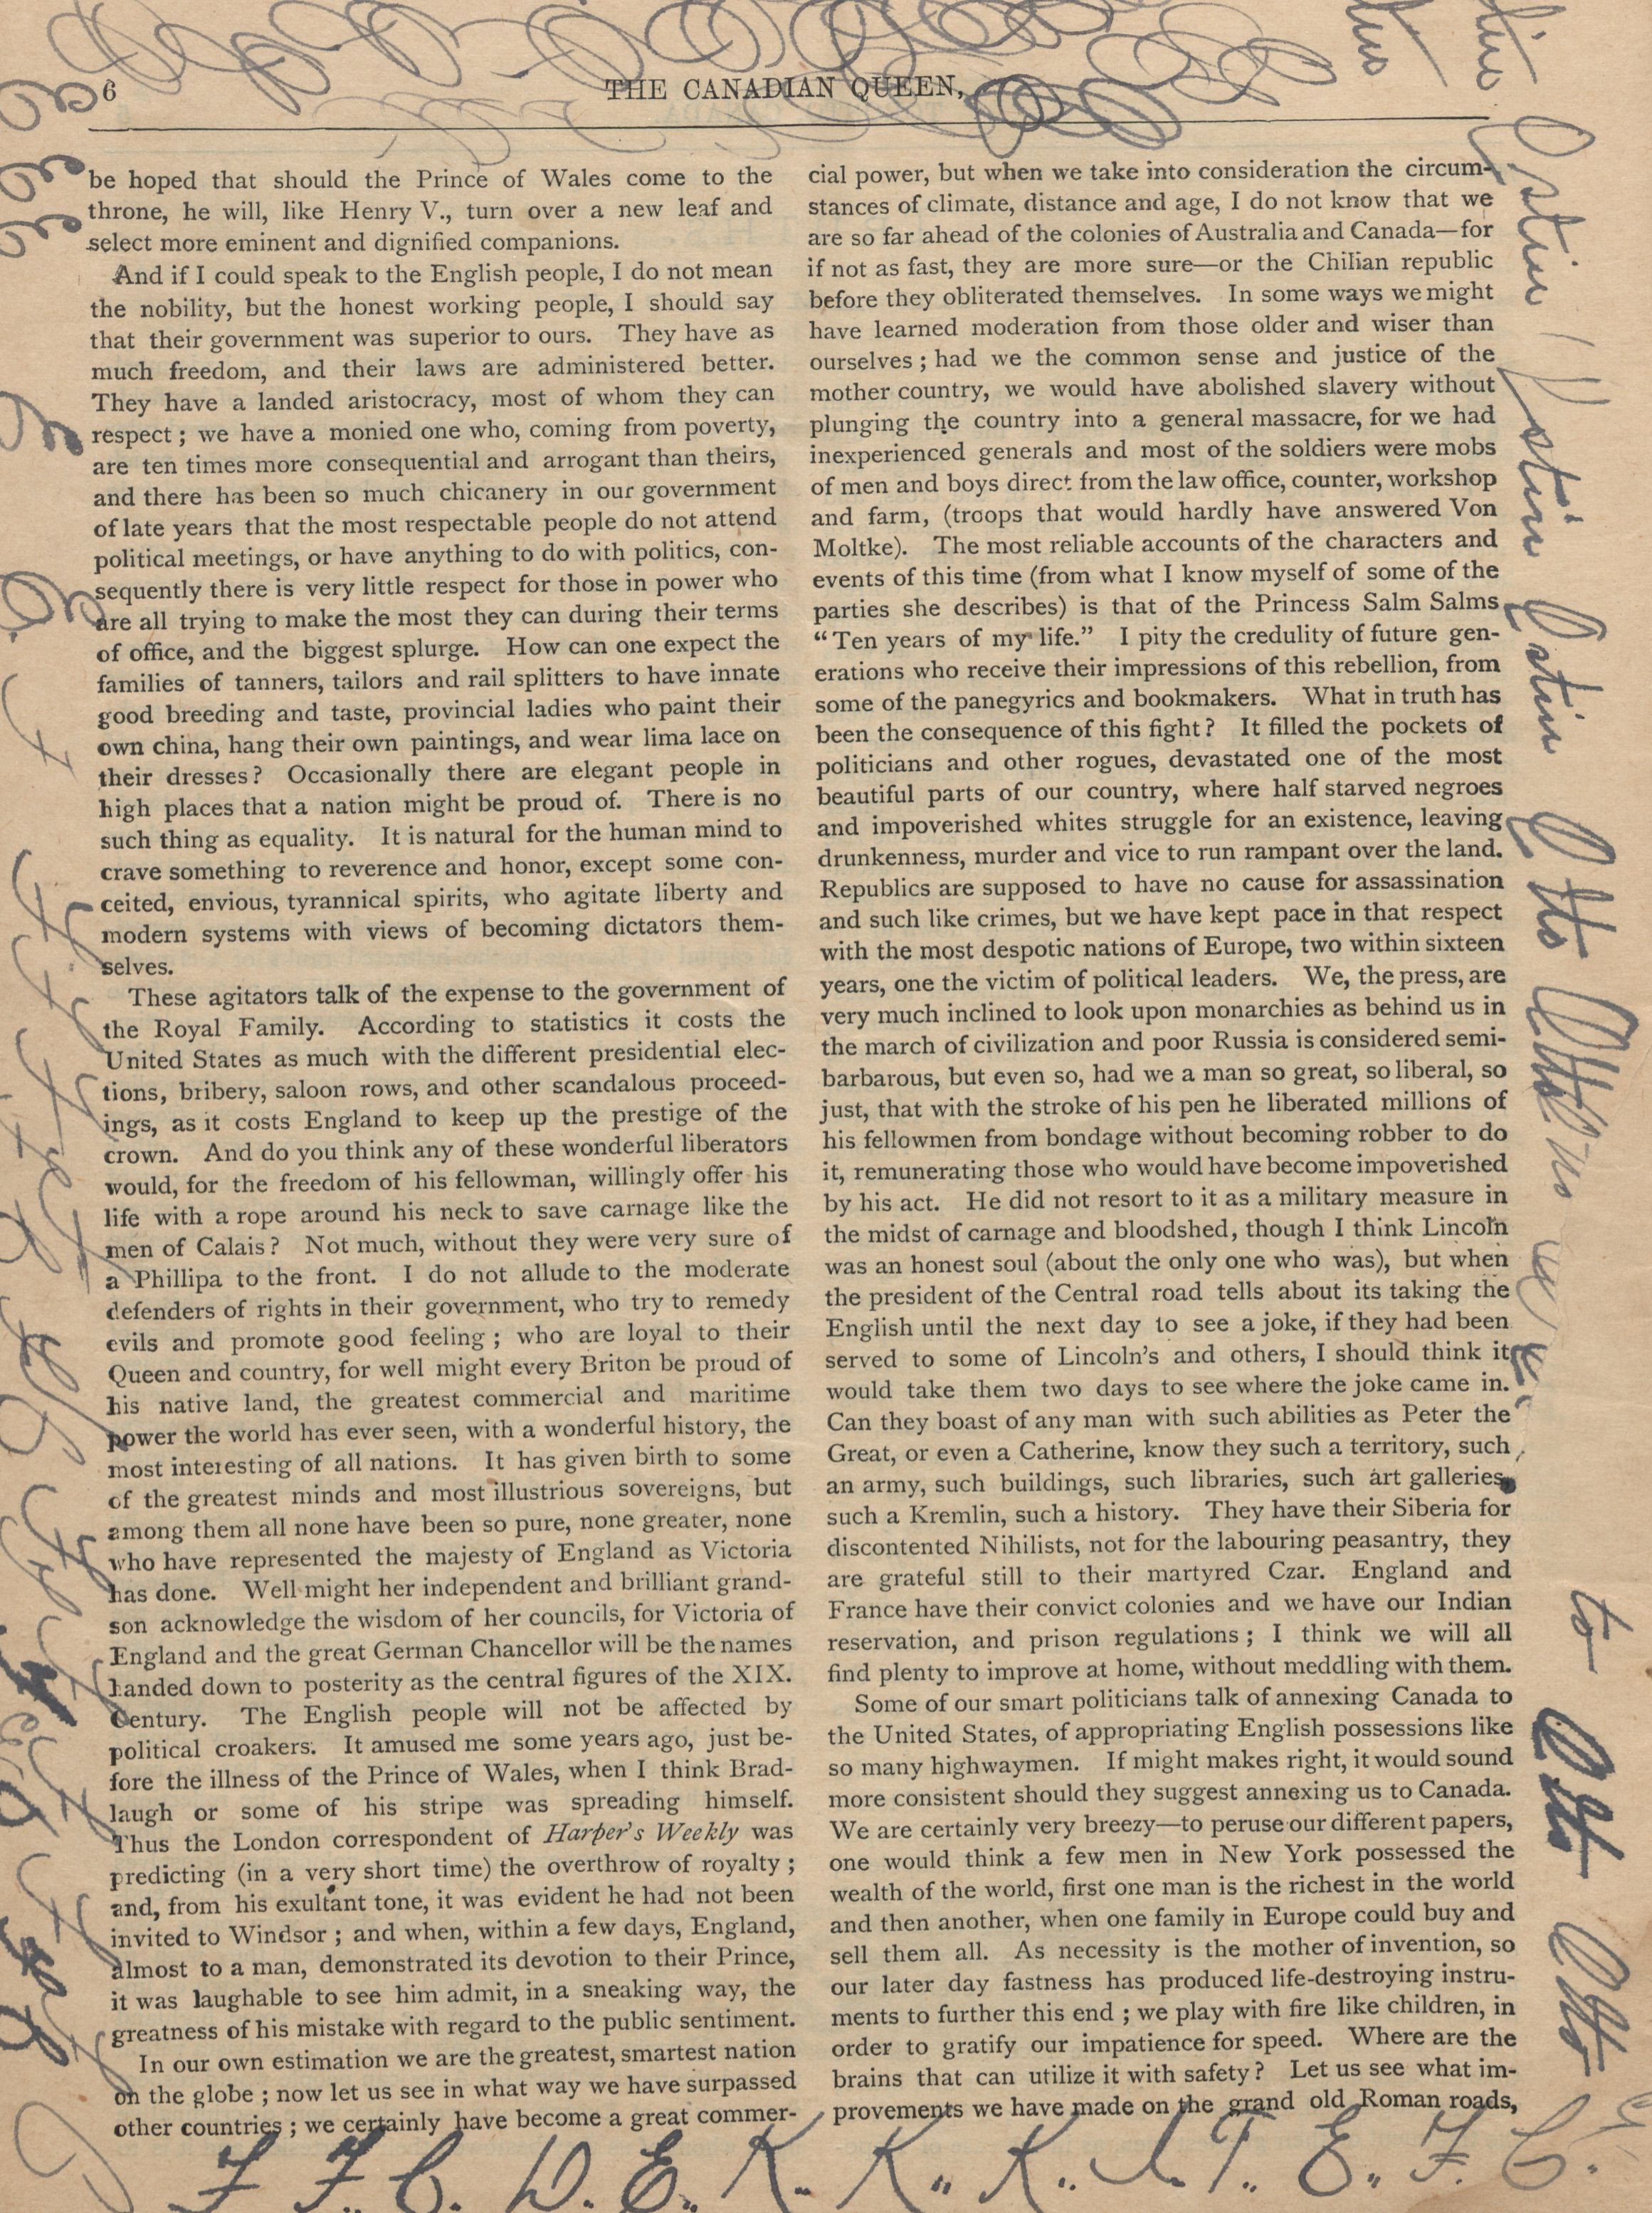 6
THE CANADIAN QUEEN,
be hoped that should the Prince of Wales come to the
throne, he will, like Henry V., turn over a new leaf and
select more eminent and dignified companions.
And if I could speak to the English people, I do not mean
the nobility, but the honest working people, I should say
that their government was superior to ours. They have as
much freedom, and their laws are administered better.
They have a landed aristocracy, most of whom they can
respect ; we have a monied one who, coming from poverty,
are ten times more consequential and arrogant than theirs,
and there has been so much chicanery in our government
of late years that the most respectable people do not attend
political meetings, or have anything to do with politics, con-
sequently there is very little respect for those in power who
are all trying to make the most they can during their terms
of office, and the biggest splurge. How can one expect the
families of tanners, tailors and rail splitters to have innate
good breeding and taste, provincial ladies who paint their
own china, hang their own paintings, and wear lima lace on
their dresses? Occasionally there are elegant people in
high places that a nation might be proud of. There is no
such thing as equality. It is natural for the human mind to
crave something to reverence and honor, except some con-
ceited, envious, tyrannical spirits, who agitate liberty and
modern systems with views of becoming dictators them-
selves.
These agitators talk of the expense to the government of
the Royal Family. According to statistics it costs the
United States as much with the different presidential elec-
tions, bribery, saloon rows, and other scandalous proceed-
ings, as it costs England to keep up the prestige of the
crown. And do you think any of these wonderful liberators
would, for the freedom of his fellowman, willingly offer his
life with a rope around his neck to save carnage like the
men of Calais? Not much, without they were very sure of
a Phillipa to the front. I do not allude to the moderate
defenders of rights in their government, who try to remedy
evils and promote good feeling ; who are loyal to their
Queen and country, for well might every Briton be proud of
his native land, the greatest commercial and maritime
power the world has ever seen, with a wonderful history, the
most interesting of all nations. It has given birth to some
of the greatest minds and most illustrious sovereigns, but
among them all none have been so pure, none greater, none
who have represented the majesty of England as Victoria
has done. Well might her independent and brilliant grand-
son acknowledge the wisdom of her councils, for Victoria of
England and the great German Chancellor will be the names
handed down to posterity as the central figures of the XIX.
Century. The English people will not be affected by
political croakers. It amused me some years ago, just be-
fore the illness of the Prince of Wales, when I think Brad-
laugh or some of his stripe was spreading himself.
Thus the London correspondent of Harper's Weekly was
predicting (in a very short time) the overthrow of royalty ;
and, from his exultant tone, it was evident he had not been
invited to Windsor ; and when, within a few days, England,
almost to a man, demonstrated its devotion to their Prince,
it was laughable to see him admit, in a sneaking way, the
greatness of his mistake with regard to the public sentiment.
In our own estimation we are the greatest, smartest nation
on the globe ; now let us see in what way we have surpassed
other countries ; we certainly have become a great commer-
cial power, but when we take into consideration the circum-
stances of climate, distance and age, I do not know that we
are so far ahead of the colonies of Australia and Canada—for
if not as fast, they are more sure—or the Chilian republic
before they obliterated themselves. In some ways we might
have learned moderation from those older and wiser than
ourselves ; had we the common sense and justice of the
mother country, we would have abolished slavery without
plunging the country into a general massacre, for we had
inexperienced generals and most of the soldiers were mobs
of men and boys direct from the law office, counter, workshop
and farm, (troops that would hardly have answered Von
Moltke). The most reliable accounts of the characters and
events of this time (from what I know myself of some of the
parties she describes) is that of the Princess Salm Salms
“Ten years of my life.” I pity the credulity of future gen-
erations who receive their impressions of this rebellion, from
some of the panegyrics and bookmakers. What in truth has
been the consequence of this fight? It filled the pockets of
politicians and other rogues, devastated one of the most
beautiful parts of our country, where half starved negroes
and impoverished whites struggle for an existence, leaving
drunkenness, murder and vice to run rampant over the land.
Republics are supposed to have no cause for assassination
and such like crimes, but we have kept pace in that respect
with the most despotic nations of Europe, two within sixteen
years, one the victim of political leaders. We, the press, are
very much inclined to look upon monarchies as behind us in
the march of civilization and poor Russia is considered semi-
barbarous, but even so, had we a man so great, so liberal, so
just, that with the stroke of his pen he liberated millions of
his fellowmen from bondage without becoming robber to do
it, remunerating those who would have become impoverished
by his act. He did not resort to it as a military measure in
the midst of carnage and bloodshed, though I think Lincoln
was an honest soul (about the only one who was), but when
the president of the Central road tells about its taking the
English until the next day to see a joke, if they had been
served to some of Lincoln's and others, I should think it
would take them two days to see where the joke came in.
Can they boast of any man with such abilities as Peter the
Great, or even a Catherine, know they such a territory, such
an army, such buildings, such libraries, such art galleries,
such a Kremlin, such a history. They have their Siberia for
discontented Nihilists, not for the labouring peasantry, they
are grateful still to their martyred Czar. England and
France have their convict colonies and we have our Indian
reservation, and prison regulations ; I think we will all
find plenty to improve at home, without meddling with them.
Some of our smart politicians talk of annexing Canada to
the United States, of appropriating English possessions like
so many highwaymen. If might makes right, it would sound
more consistent should they suggest annexing us to Canada.
We are certainly very breezy—to peruse our different papers,
one would think a few men in New York possessed the
wealth of the world, first one man is the richest in the world
and then another, when one family in Europe could buy and
sell them all. As necessity is the mother of invention, so
our later day fastness has produced life-destroying instru-
ments to further this end ; we play with fire like children, in
order to gratify our impatience for speed. Where are the
brains that can utilize it with safety? Let us see what im-
provements we have made on the grand old Roman roads,
F F. C. D. E. K. K. K. I. T. E. F. C.